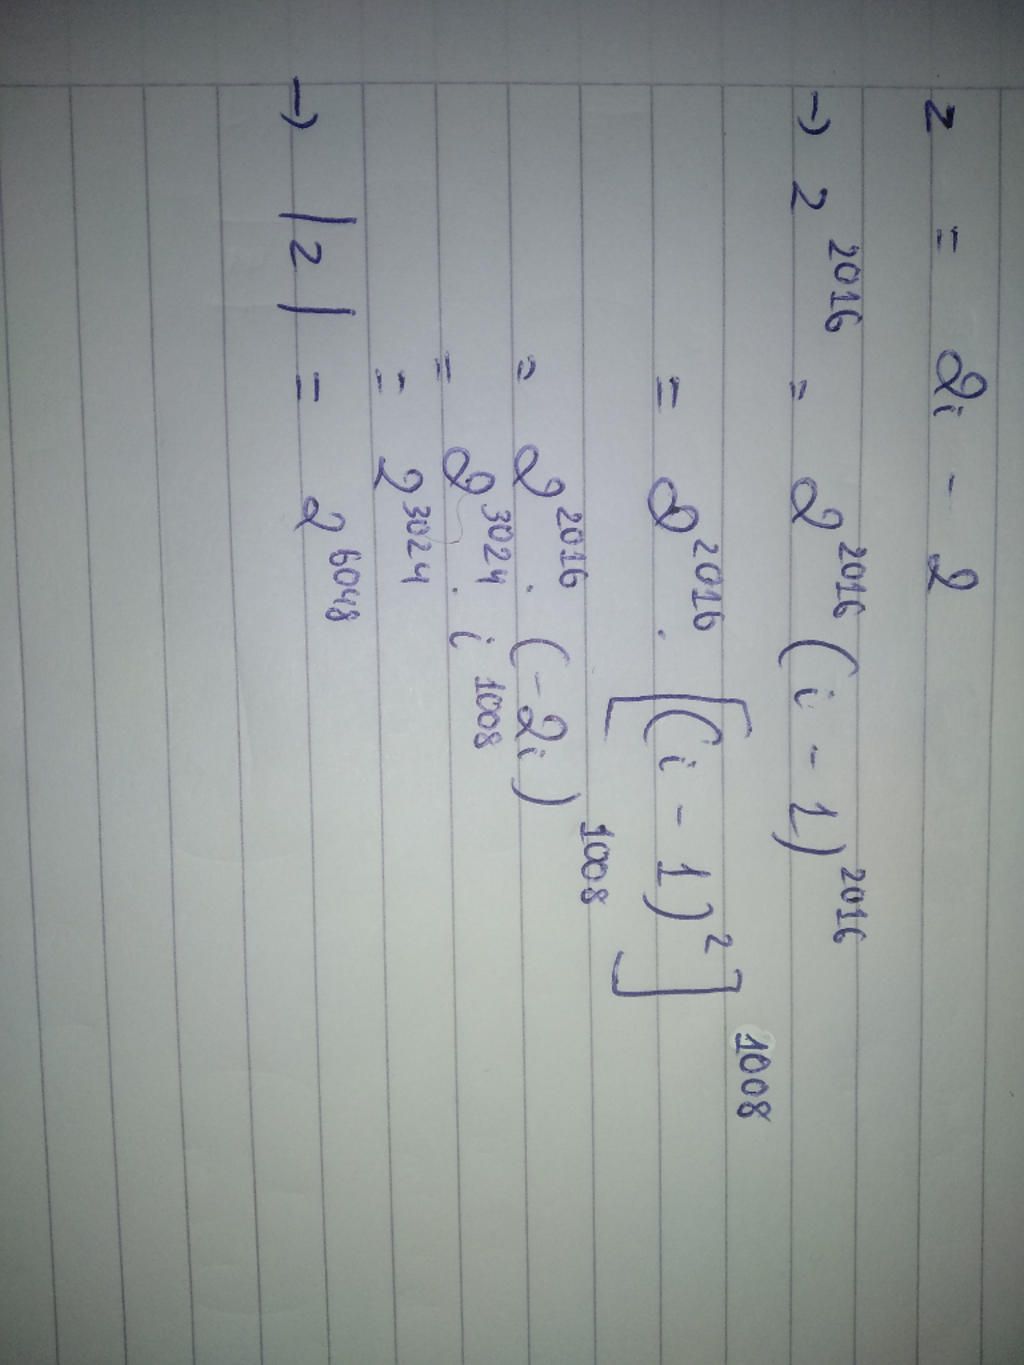 z = 2i - 2
→ z^2016 = 2^2016 (i - 1)^2016
= 2^2016 . [(i - 1)^2]^1008
= 2^2016 . (-2i)^1008
= 2^3024 . i^1008
= 2^3024
→ |z| = 2^6048